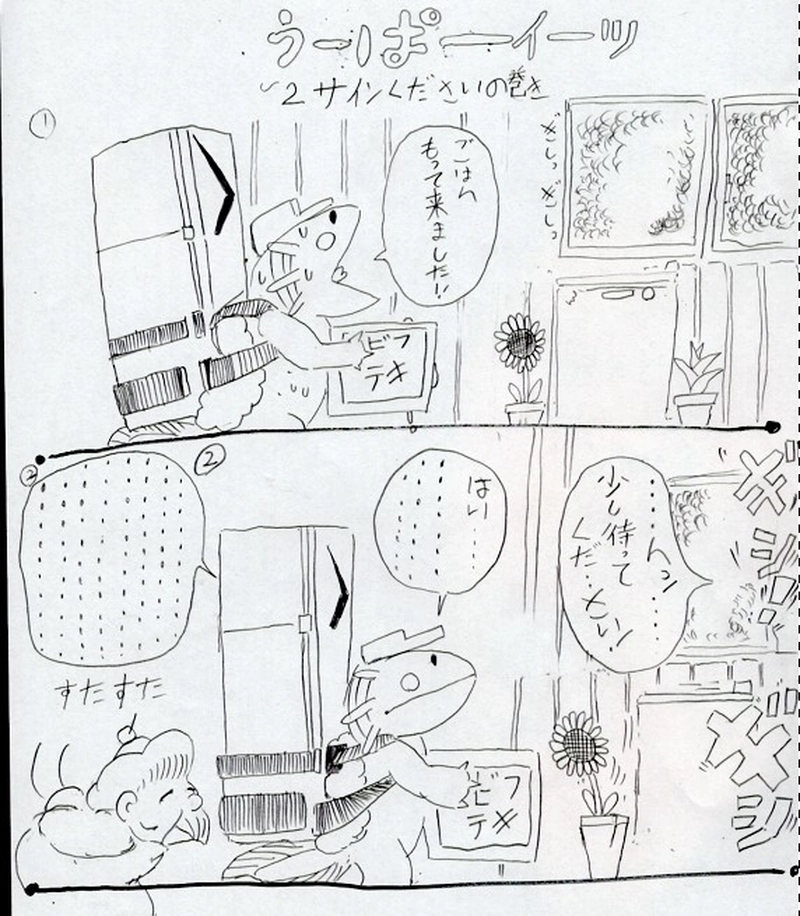 うーぱーイーツ
2 サインくださいの巻き
①
ごはん
もって来ました!!
ぎしっ ぎしっ
ビフ
テキ
②
はい……
……んっ……
少し待って
くだ…さい!
ギシ
ギシ
すたすた
ビフ
テキ